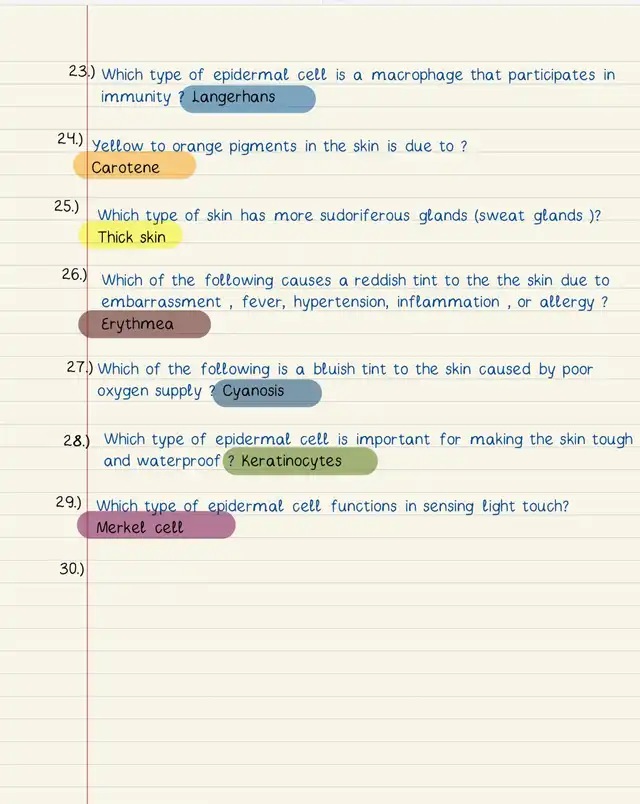 23.) Which type of epidermal cell is a macrophage that participates in
immunity ? Langerhans
24.) Yellow to orange pigments in the skin is due to ?
Carotene
25.) Which type of skin has more sudoriferous glands (sweat glands )?
Thick skin
26.) Which of the following causes a reddish tint to the the skin due to
embarrassment , fever, hypertension, inflammation , or allergy ?
Erythmea
27.) Which of the following is a bluish tint to the skin caused by poor
oxygen supply ? Cyanosis
28.) Which type of epidermal cell is important for making the skin tough
and waterproof ? Keratinocytes
29.) Which type of epidermal cell functions in sensing light touch?
Merkel cell
30.)